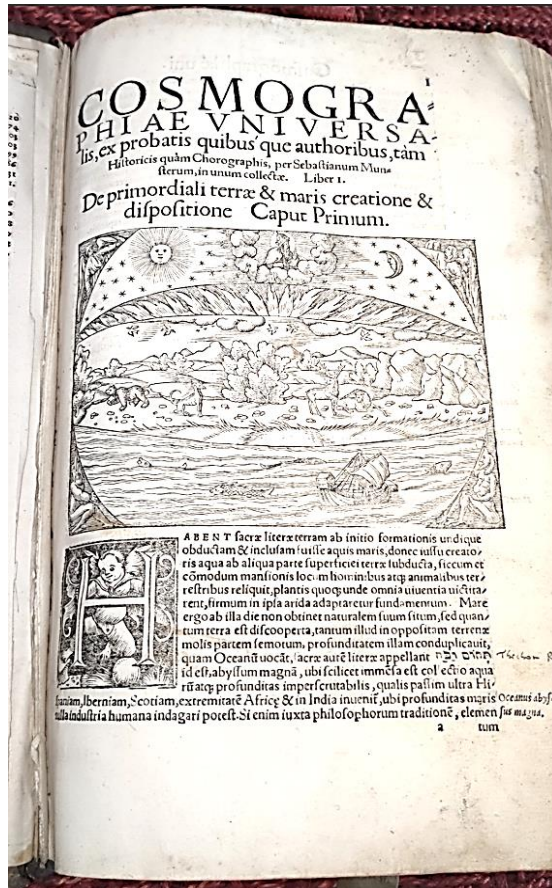 1
COSMOGRA-
PHIAE VNIVERSA-
lis, ex probatis quibus'que authoribus, tàm
Historicis quàm Chorographis, per Sebastianum Mun-
sterum, in unum collectæ. Liber I.
De primordiali terræ & maris creatione &
dispositione Caput Primum.
HABENT sacræ literæ terram ab initio formationis undique
obductam & inclusam fuisse aquis maris, donec iussu creato-
ris aqua ab aliqua parte superficiei terræ subducta, siccum et
cōmodum mansionis locum hominibus atq; animalibus ter-
restribus reliquit, plantis quoq; unde omnia uiuentia uictita-
rent, firmum in ipsa arida adaptaretur fundamentum. Mare
ergo ab illa die non obtinet naturalem suum situm, sed quan-
tum terra est discooperta, tantum illud in oppositam terrenæ
molis partem semotum, profunditatem illam conduplicauit,
quam Oceanū uocāt, sacræ autē literæ appellant תהום רבה
id est, abyssum magnā, ubi scilicet immēsa est collectio aqua
rū atq; profunditas imperscrutabilis, qualis passim ultra Hi-
spaniam, Iberniam, Scotiam, extremitatē Africę & in India inuenit, ubi profunditas maris
nulla industria humana indagari potest. Si enim iuxta philosophorum traditionē, elemen
Oceanus abys-
sus magna.
a tum